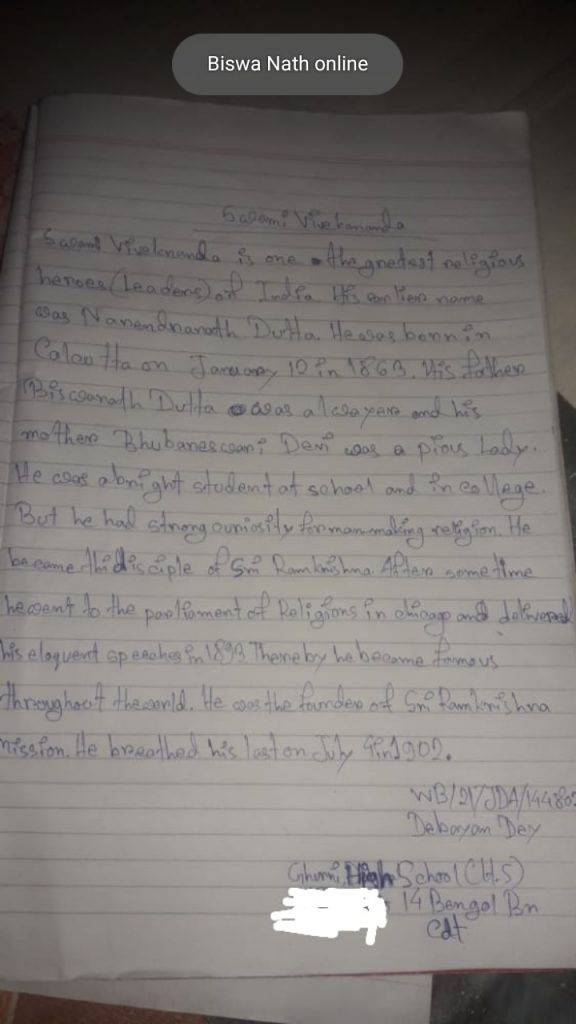 Biswa Nath online
Swami Vivekananda
Swami Viveknanda is one the greatest religious
heroes (Leaders) of India His earlier name
was Narendranath Dutta. He was born in
Calcutta on January 12 in 1863. His father
Biswanath Dutta was a lawyer and his
mother Bhubaneswari Devi was a pious Lady.
He was a bright student at school and in college.
But he had strong curiosity for man making religion. He
became the disciple of Sri Ramkrishna. After sometime
he went to the parliament of Religions in chicago and delivered
his eloquent speeches in 1893 Thereby he became famous
throughout the world. He was the founder of Sri Ramkrishna
mission. He breathed his last on July 4 in 1902.
WB/21/JDA/144802
Debayan Dey
Ghurni High School (H.S)
14 Bengal Bn
Cdt